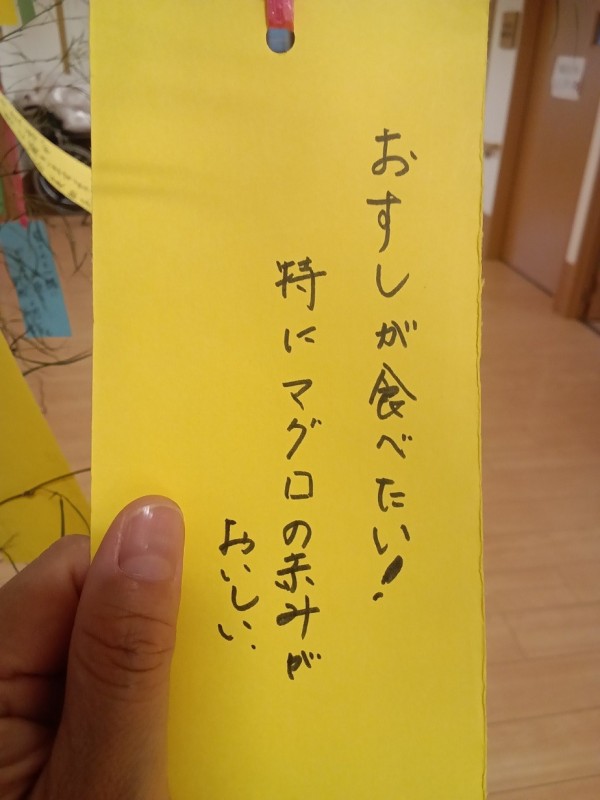 おすしが食べたい!
特にマグロの赤みが
おいしい.